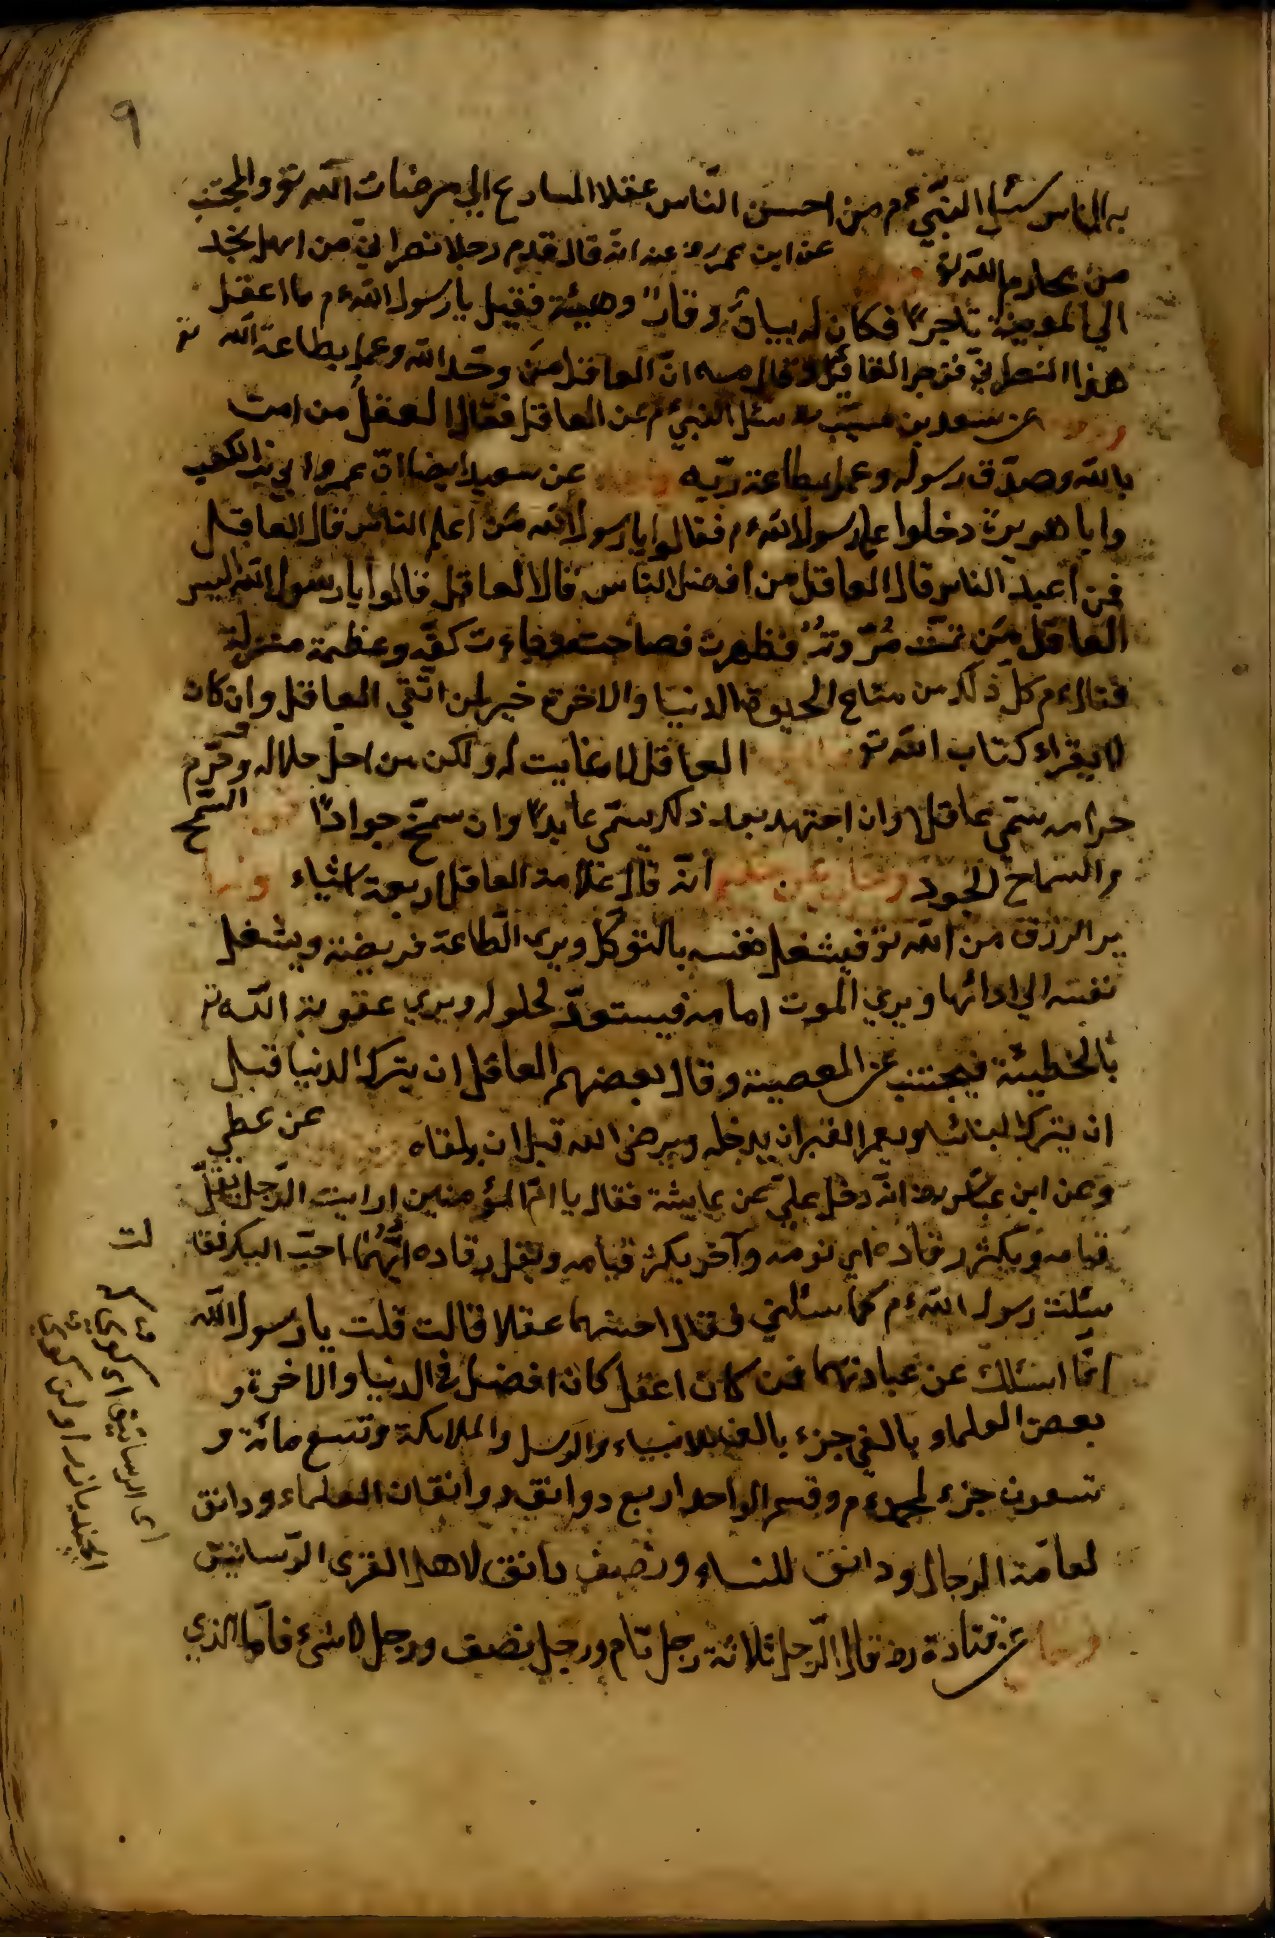 ٩
به الناس سئل النبي ءم من احسن الناس عقلا المسارع الى مرضات الله تع والمجتنب
من محارم الله تع عن ابن عمر رض عنه انه قال قدم رجلا نصراني من اهل نجد
الى المدينة تاجرًا فكان له بيان وقارٌ وهيئة فقيل يا رسول الله ءم ما اعقل
هذا النصراني فزجر القائل وقال مه ان العاقل من وحّد الله وعمل بطاعة الله تع
عن سعد بن مسيّب سئل النبي ءم عن العاقل فقال العقل من امن
بالله وصدّق رسوله وعمل بطاعة ربّه عن سعيد ايضا انّ عمر وابي بن الكعب
وابا هريرة دخلوا على رسول الله ءم فقالوا يا رسول الله من اعلم الناس قال العاقل
فمن اعبد الناس قال العاقل من افضل الناس قال العاقل قالوا يا رسول الله اليس
العاقل من تمّت مُرّوتهُ وظهرت فصاحته وجاءت كفّه وعظمة منزلته
فقال ءم كلّ ذلك من متاع الحيوة الدنيا والاخرة خير لمن اتّقى العاقل وان كان
لا يقراء كتاب الله تع العاقل لا غايت له ولكن من احلّ حلاله وحرّم
حرامه سمّى عاقلا وان اجتهد بعد ذلك سمّى عابدًا وان سمح جوادًا السمح
والسماح الجود وحكى عن حكيم انّه قال علامة العاقل اربعة اشياء
يرى الرزق من الله تع فيشغل نفسه بالتوكّل ويرى الطاعة فريضة ويشغل
نفسه الى ادائها ويرى الموت امامه فيستعدّ لحلوله ويرى عقوبة الله تع
بالخطيئة فيجتنب عن المعصية وقال بعضهم العاقل ان يترك الدنيا قبل
ان يتركه الدنيا ويعمر القبر ان يدخله ويرضى الله قبل ان يلقاه عن عطى
وعن ابن عبّاس رض انّه دخل على عن عايشة فقال يا امّ المؤمنين ارايت الرجل يقلّ
قيامه ويكثر رقاده اى نومه وآخر يكثر قيامه ويقل رقاده ايّهما احبّ اليك فقا
لت
سئلت رسول الله ءم كما سئلني فقال احسنهما عقلا فقالت قلت يا رسول الله
انّما اسئلك عن عبادتهما فمن كان اعقل كان افضل في الدنيا والاخرة و
بعض العلماء بالفى جزء بالف للانبياء والرسل والملائكة وتسع مائة و
تسعون جزء لمحمد ءم وقسم الواحد اربع دوانق دوانقان العلماء ودانق
لعامّة الرجال ودانق للنساء ونصف دانق لاهل القرى الرّساتيق
عن قتادة رض قال الرجل ثلاثة رجل تام ورجل نصف ورجل لا شئ فامّا الذي
اى الرساتيق اى